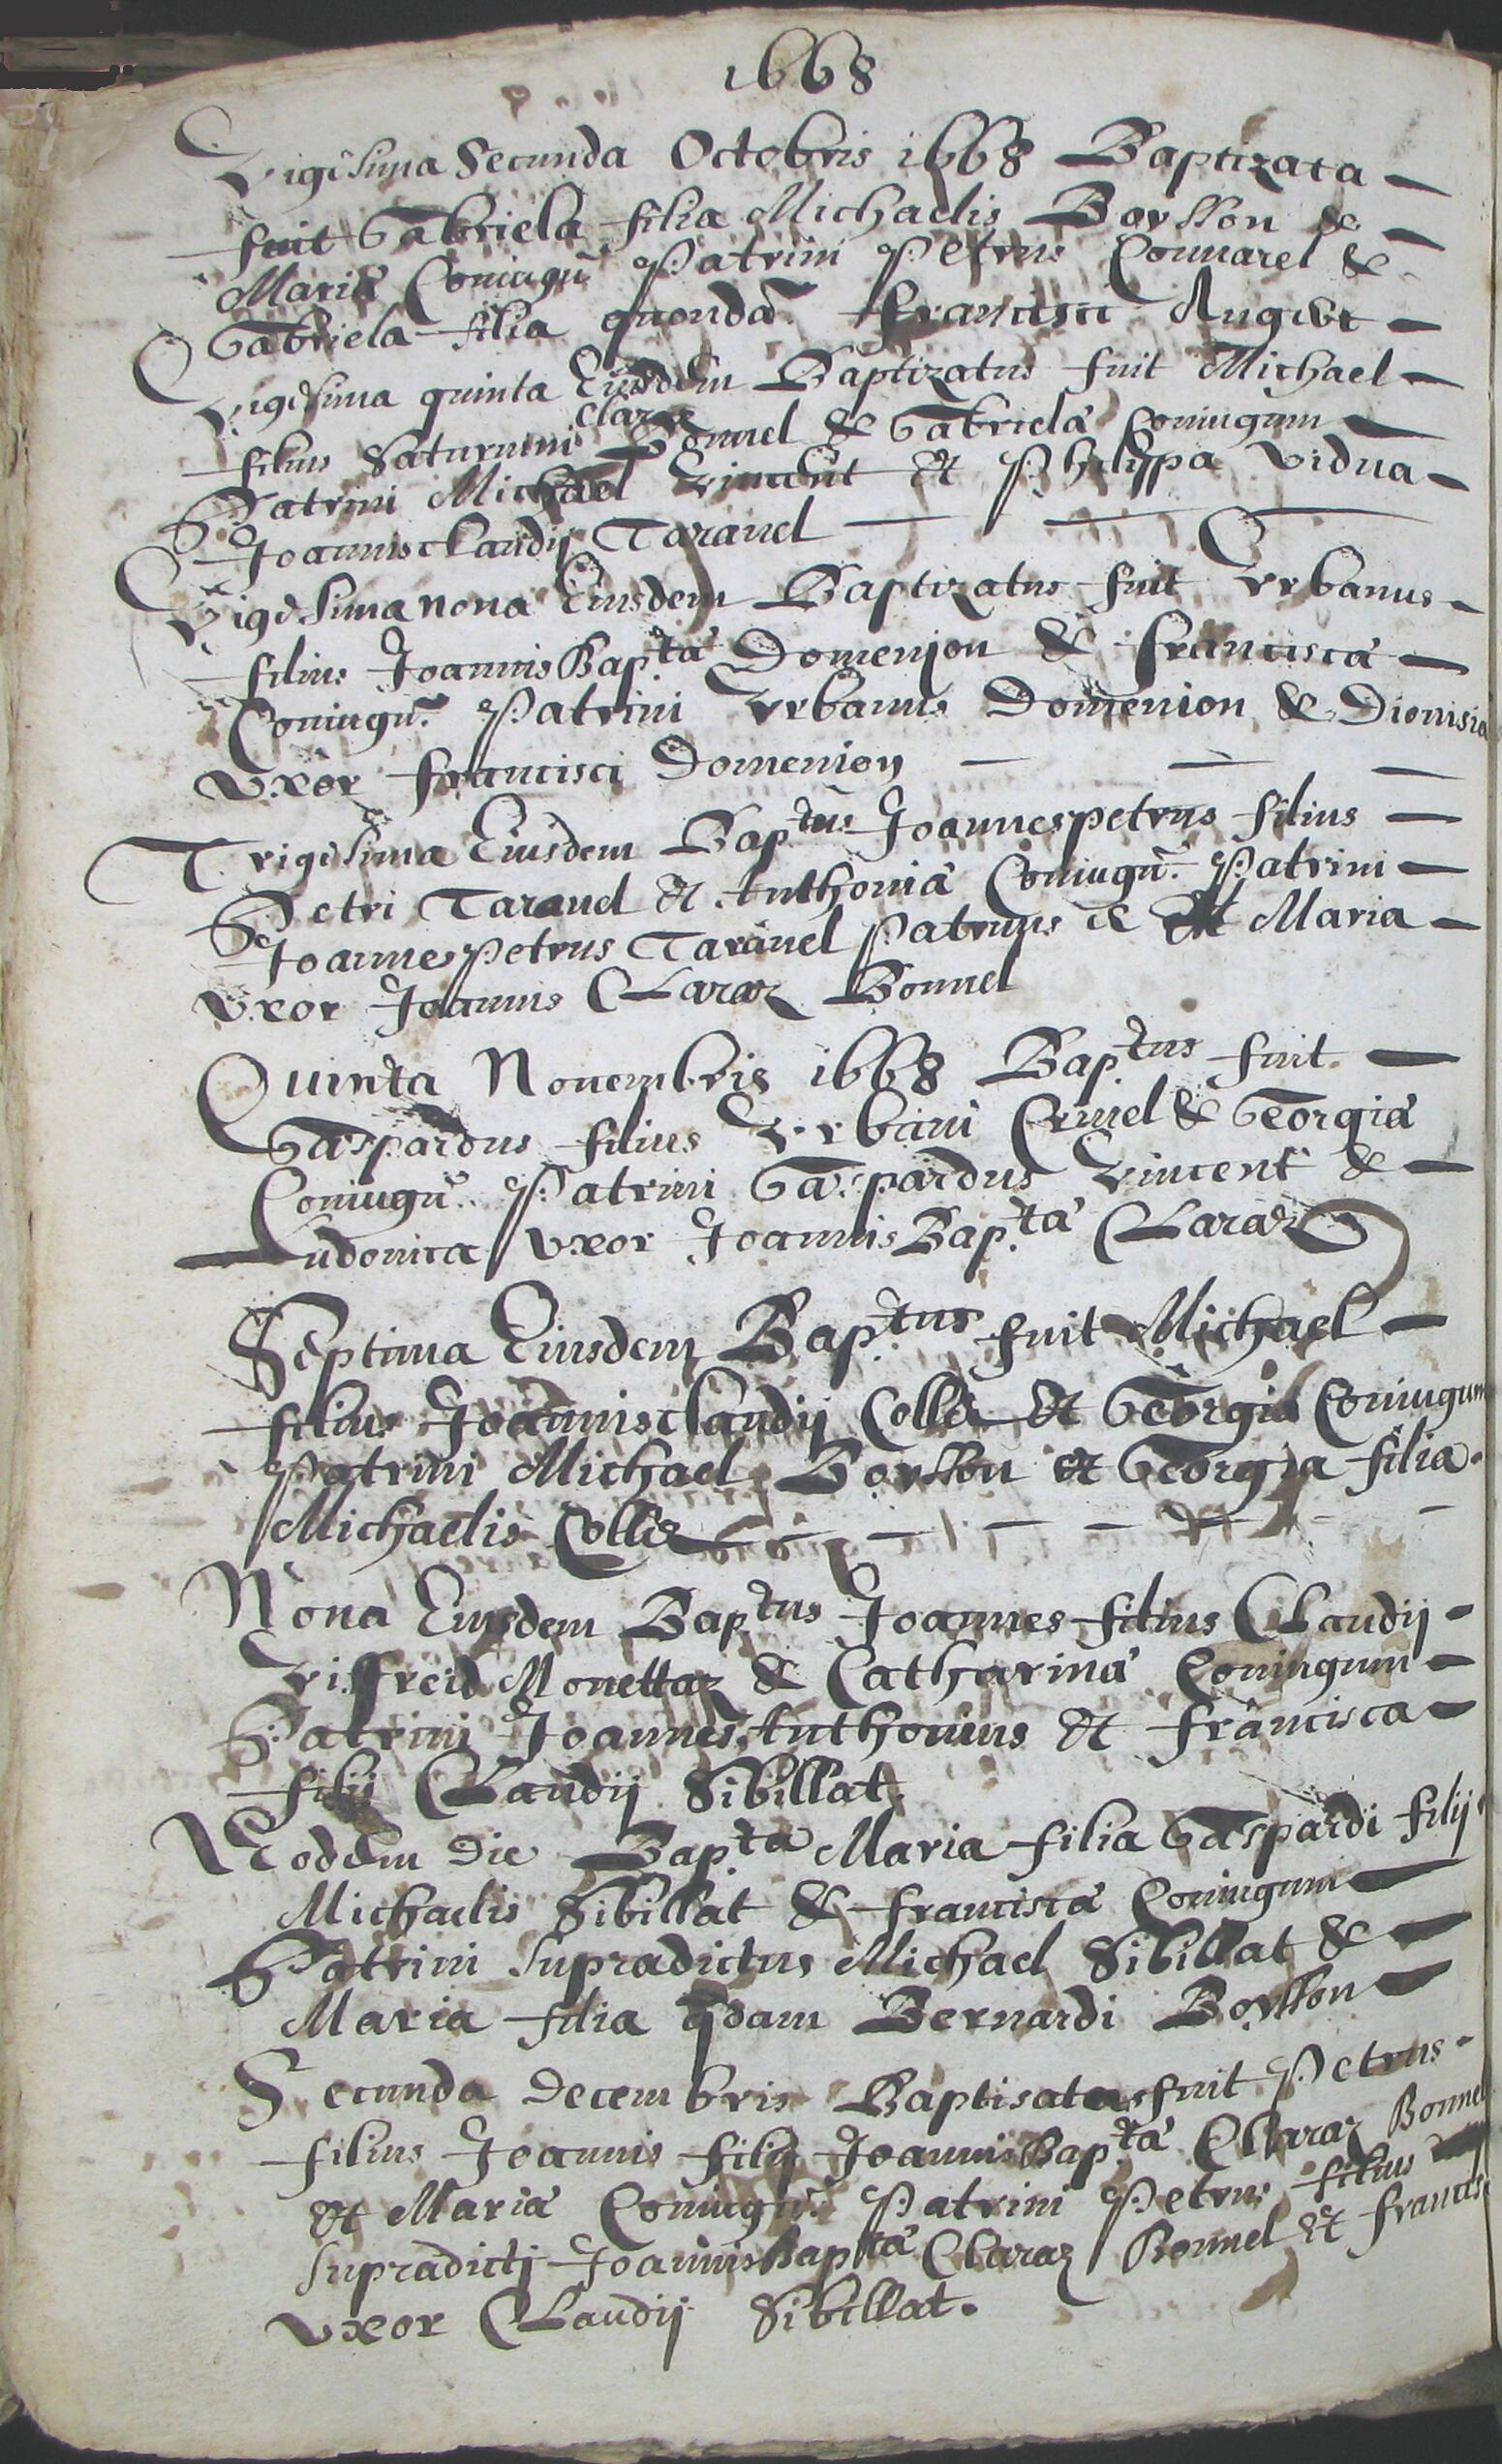 1668
Vigesima Secunda Octobris 1668 Baptizata —
fuit Gabriela filia Michaelis Borllon & —
Mariæ Coniugū Patrini Petrus Connarel &
Gabriela filia quondā Francisci Auger —
Vigesima quinta Eiusdem Baptizatus fuit Michael —
filius Saturnini Claraz Bonnel & Gabrielæ Coniugum —
Patrini Michael Vincent et Philippa vidua —
Joannisclaudij Taravel — — —
Vigesima nona Eiusdem Baptizatus fuit Vrbanus —
filius JoannisBap.tæ Domenjon & Franciscæ —
Coniugū. Patrini Vrbanus Domenion & Dionisia
vxor Francisci Domenion — — —
Trigesima Eiusdem Bap.tus Joannespetrus filius —
Petri Taravel et Anthoniæ Coniugū. Patrini —
Joannespetrus Taravel Patruus et Maria —
vxor Joannis Claraz Bonnel
Quinta Nouembris 1668 Bap.tus fuit —
Gaspardus filius Vrbani Cruel & Georgiæ
Coniugū. Patrini Gaspardus Vincent & —
Ludouica vxor JoannisBap.tæ Claraz
Septima Eiusdem Bap.tus fuit Michael —
filius Joannisclaudij Collet et Georgiæ Coniugum
Patrini Michael Borllon et Georgia filia
Michaelis Collet — — — — —
Nona Eiusdem Bap.tus Joannes filius Claudij
Viffreid Monettaz & Catharinæ Coniugum —
Patrini Joannes Anthonius et Francisca —
filij Claudij Sibillat.
Eodem die Bap.ta Maria filia Gaspardi filij
Michaelis Sibillat & Franciscæ Coniugum —
Patrini supradictus Michael Sibillat & —
Maria filia qdam Bernardi Borllon —
Secunda decembris Baptisatus fuit Petrus
filius Joannis filij JoannisBap.tæ Claraz Bonnel
et Mariæ Coniugū. Patrini Petrus filius
supradicti JoannisBaptæ Claraz Bonnel et
vxor Claudij Sibillat.